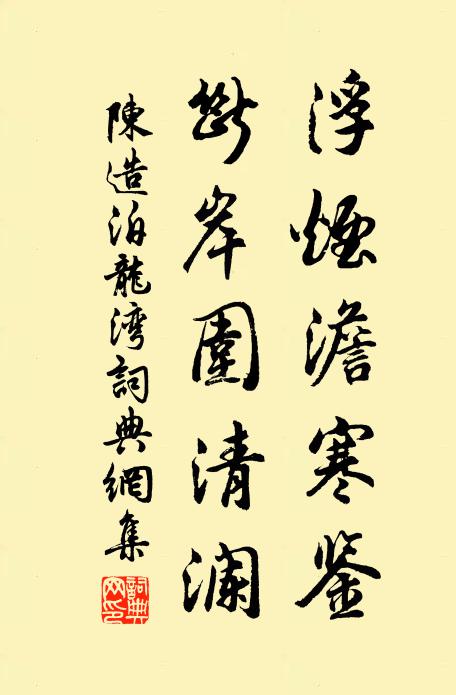 浮煙澹寒鉴
斷岸圍清澜
陳造泊龍湾詞典網集
詞典網印